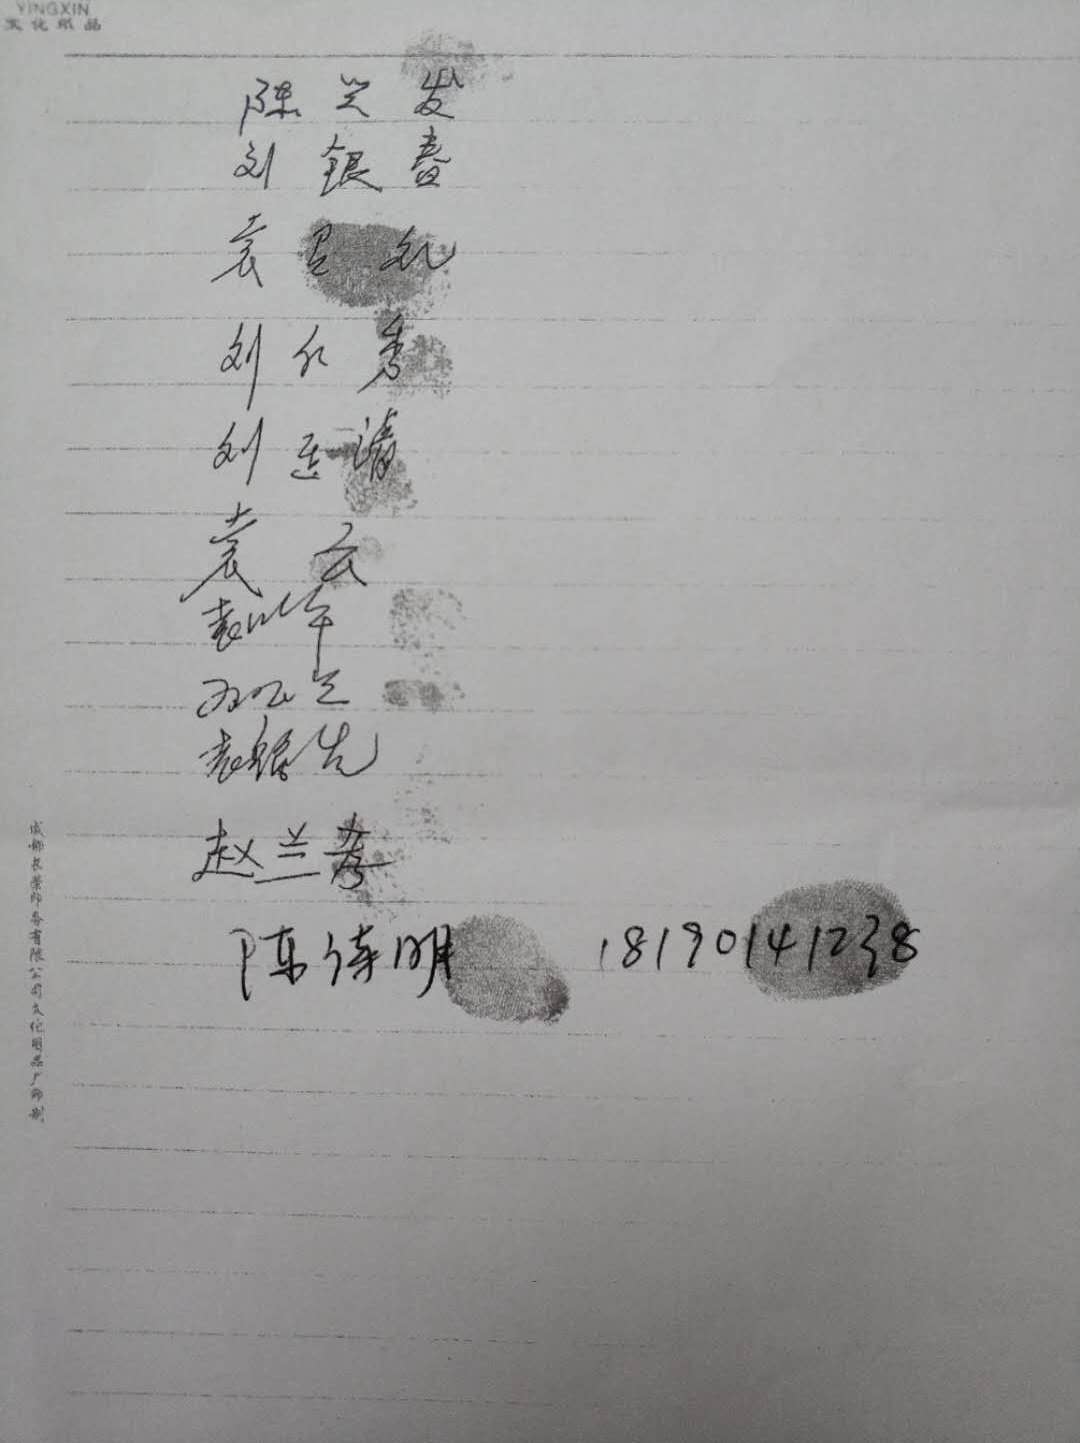 YINGXIN
文化纸品
陈兴发
刘银春
袁 礼
刘仁秀
刘连清
袁云
袁 年
兰
袁 先
赵兰芳
陈德明 18190141238
成都长荣印务有限公司文化用品厂印制